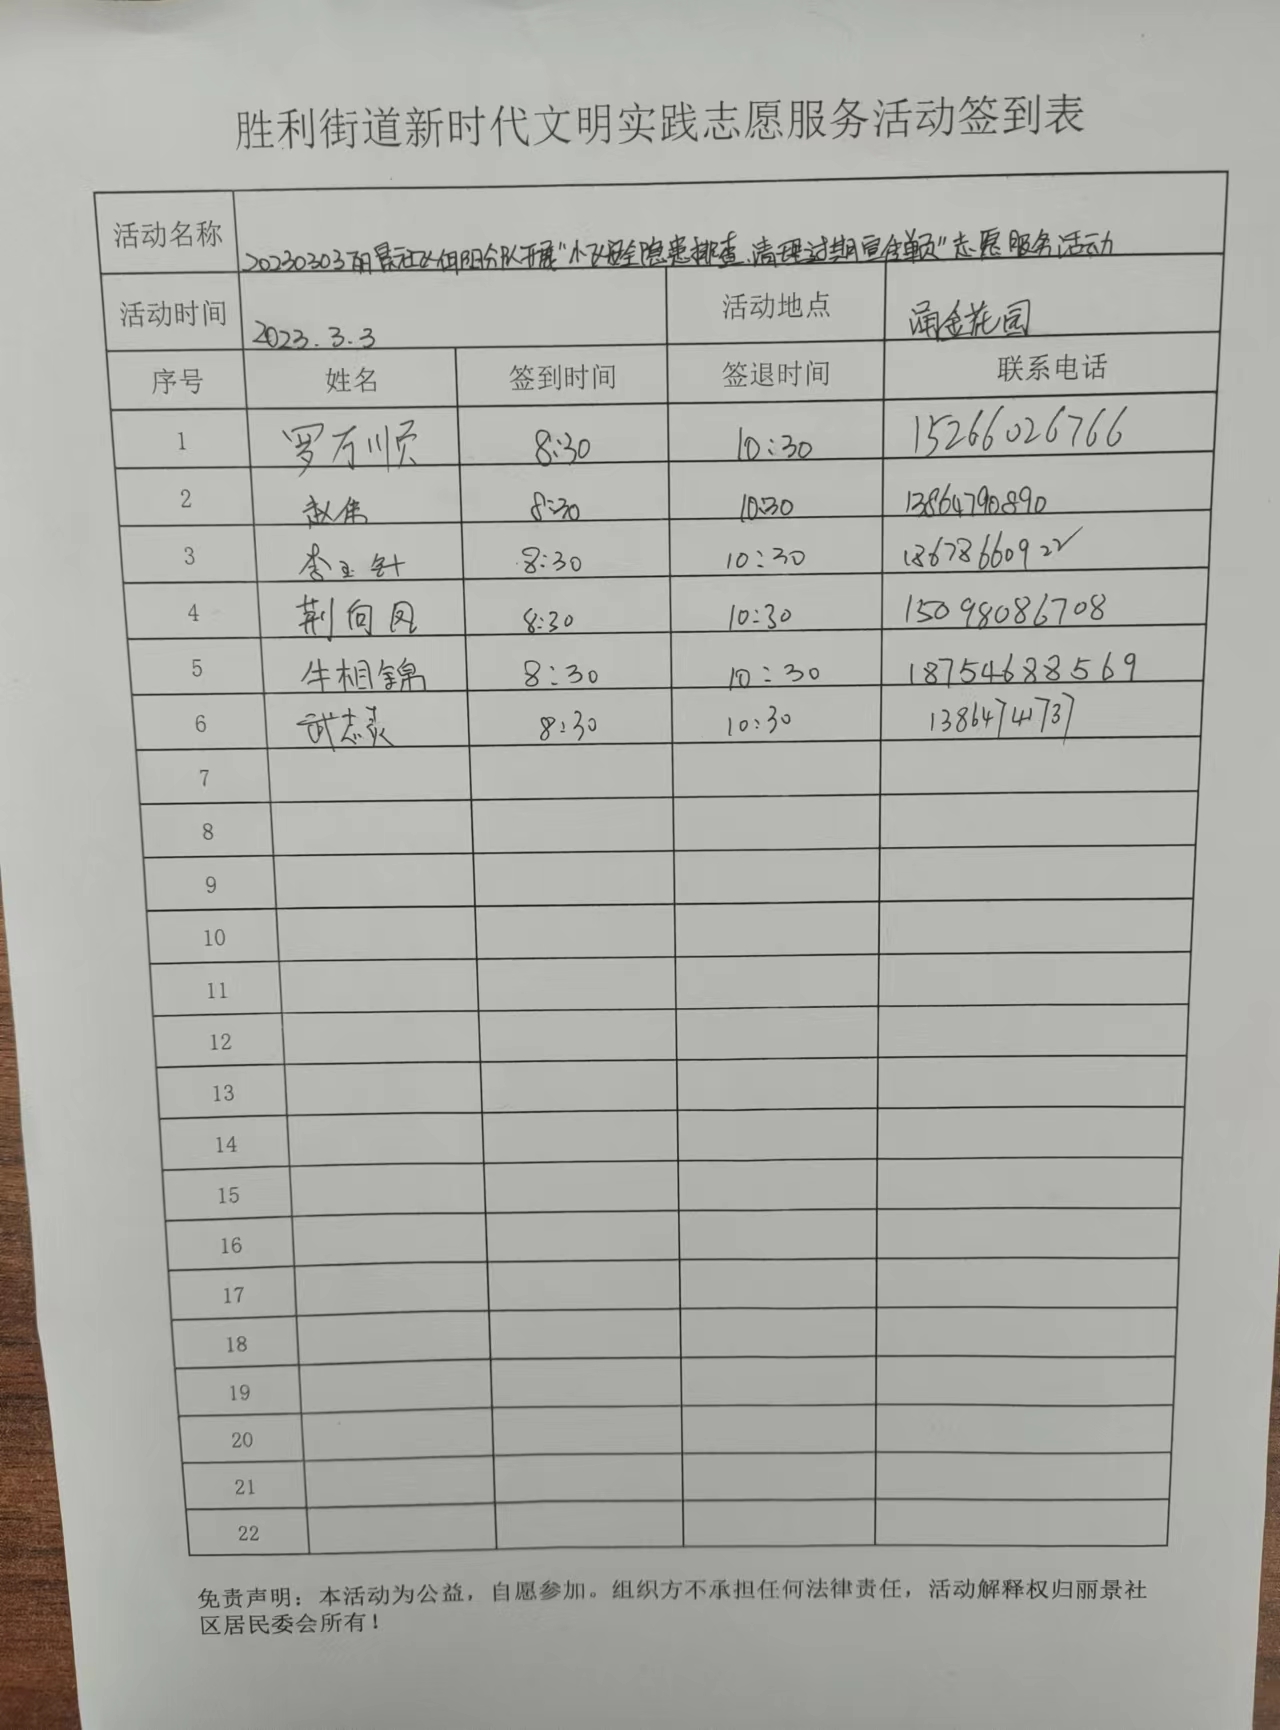 胜利街道新时代文明实践志愿服务活动签到表
活动名称 20230303丽景社区向阳分队开展“小区安全隐患排查、清理过期宣传单页”志愿服务活动
活动时间 2023.3.3 活动地点 涌金花园
序号 姓名 签到时间 签退时间 联系电话
1 罗万顺 8:30 10:30 15266026766
2 赵伟 8:30 10:30 13864790890
3 李玉针 8:30 10:30 18678660922
4 荆向凤 8:30 10:30 15098086708
5 牛相锦 8:30 10:30 18754688569
6 武志 8:30 10:30 13864741737
7
8
9
10
11
12
13
14
15
16
17
18
19
20
21
22
免责声明：本活动为公益，自愿参加。组织方不承担任何法律责任，活动解释权归丽景社
区居民委会所有！